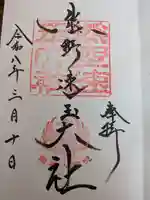 奉拝
熊野速玉大社
令和八年三月十日